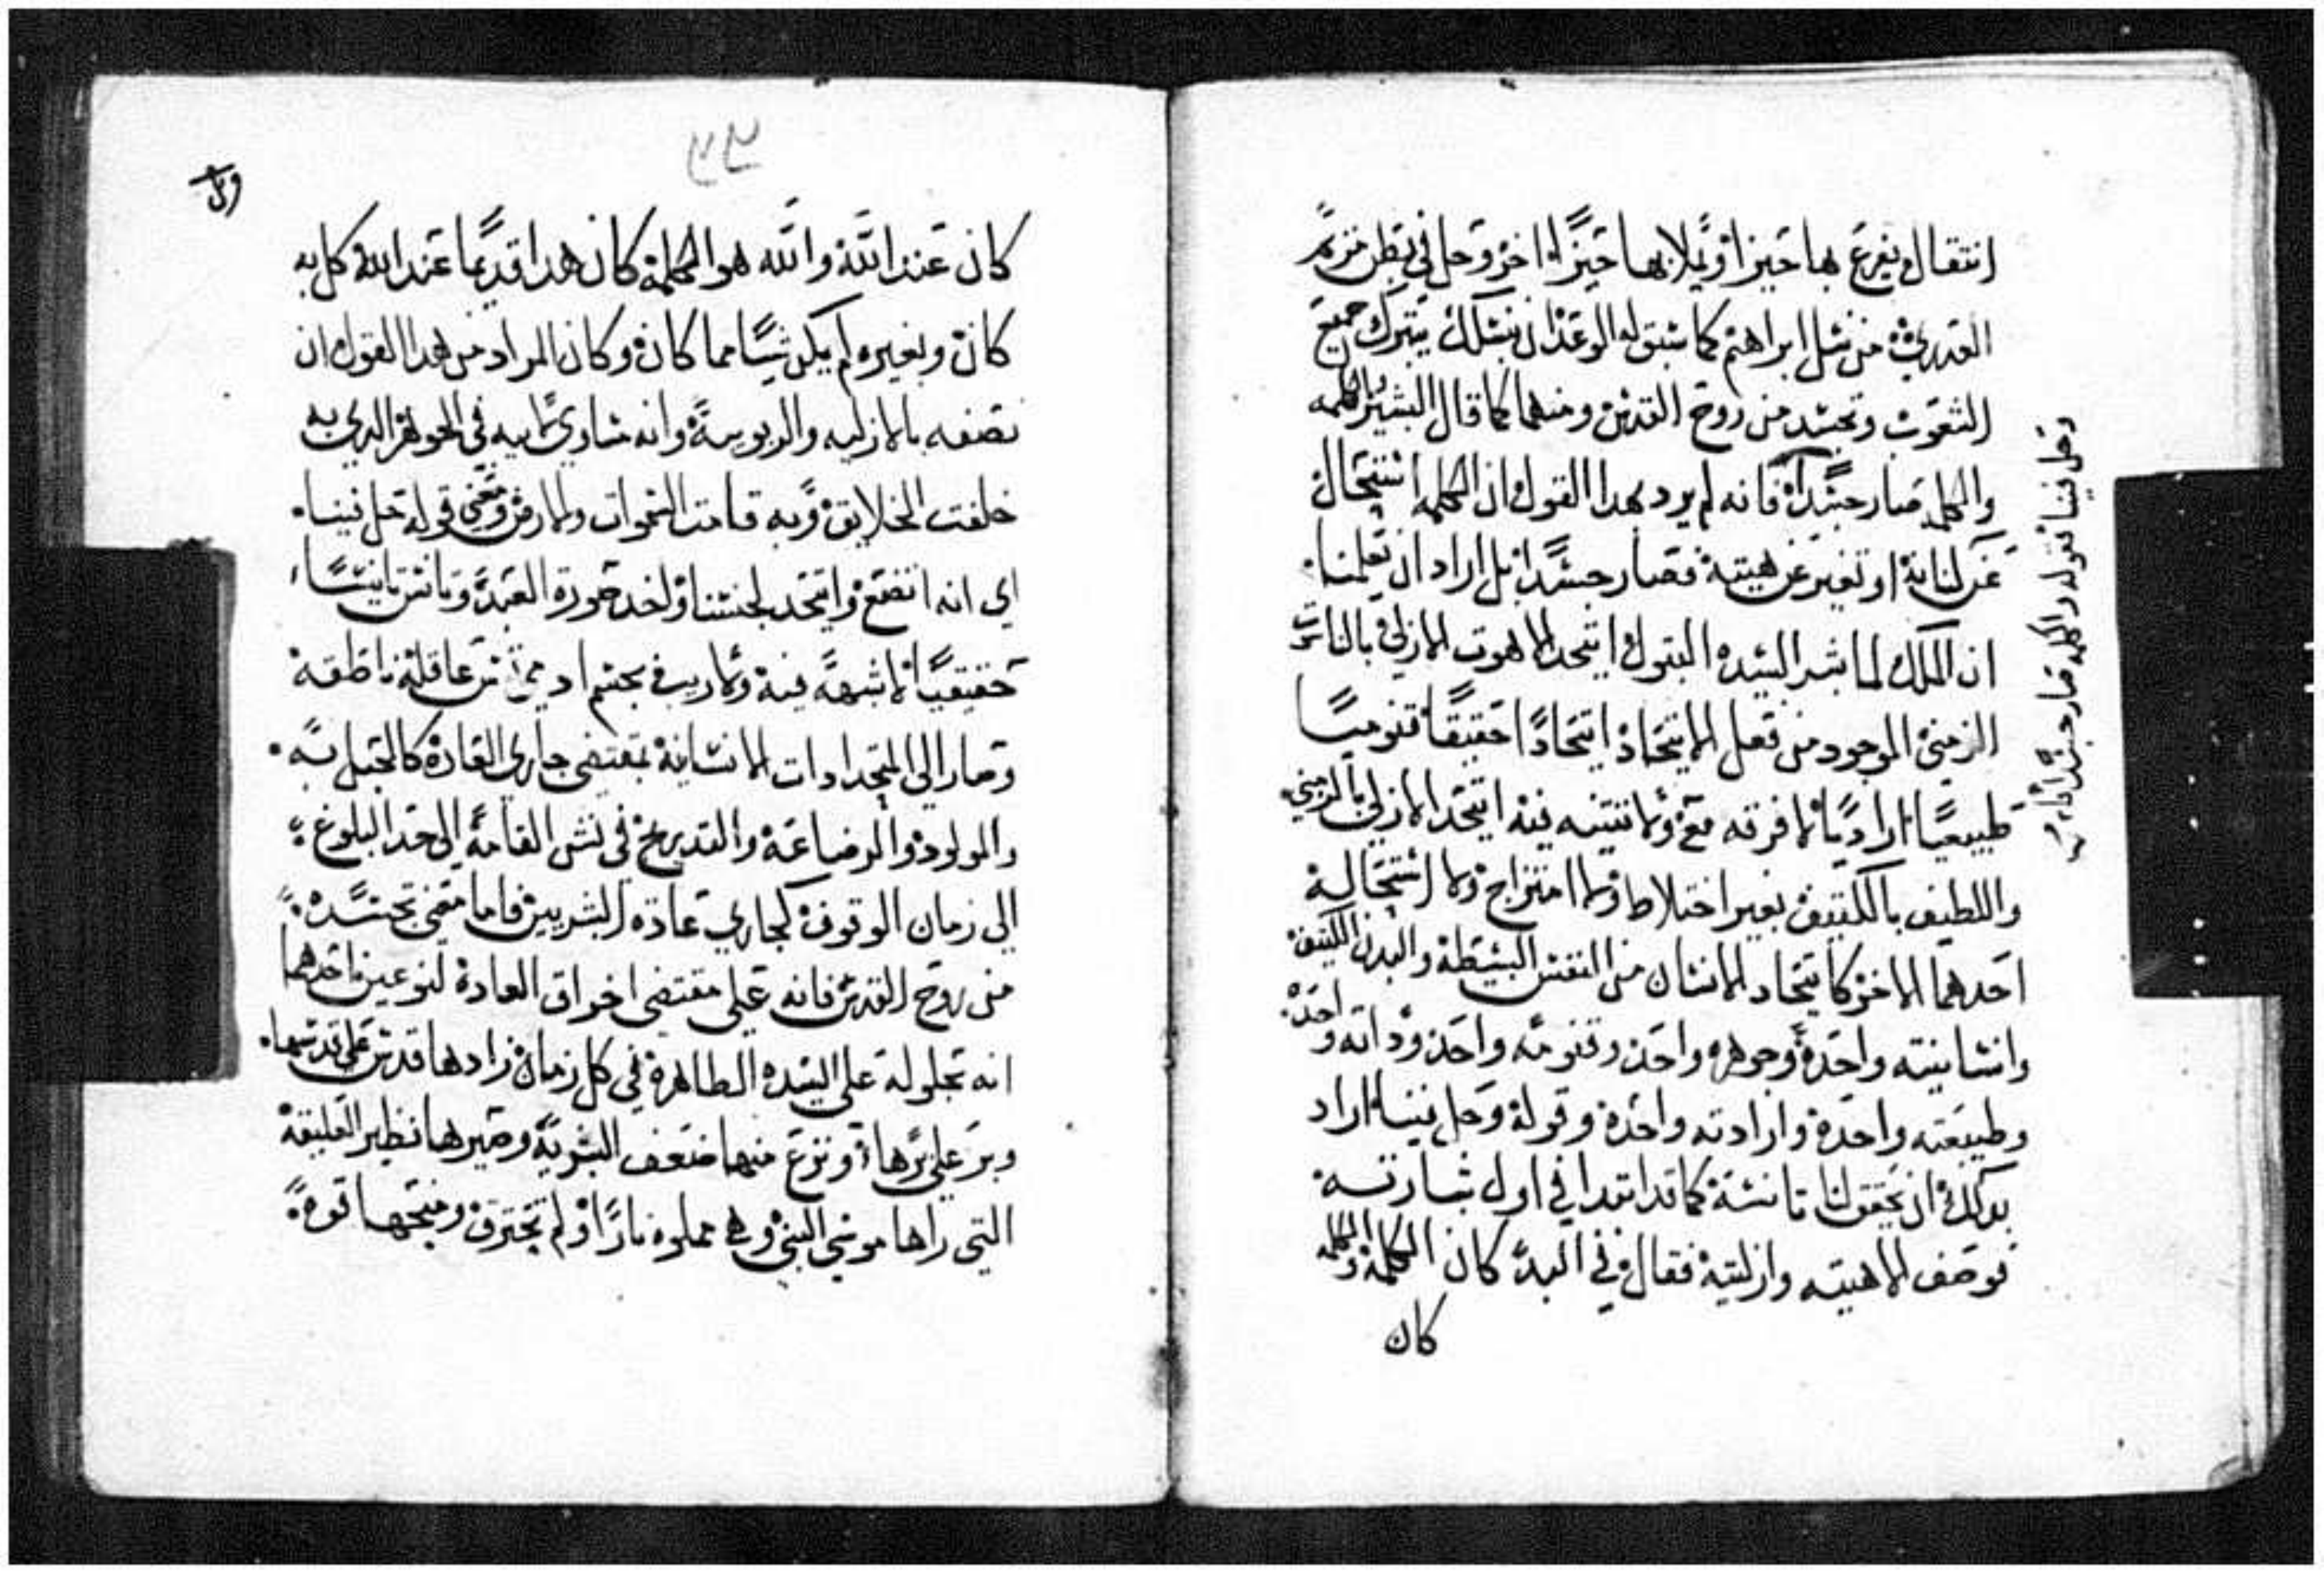 انتقال يفرغ بها حيزا او يملا بها حيزًا اخر وحل في بطن مرتمريم
القديسه من نسل ابراهيم كما سبق له الوعد ان بنسلك يتبرك جميع
الشعوب وتجسد من روح القدس ومنها كما قال البشير بالكلمه
والكلمه صار جسدًا فانه لم يرد بهدا القول ان الكلمه استحال
عن لنايه او تغير عن هيته فصار جسدًا بل اراد ان يعلمنا
ان الملاك لما بشر السيده البتول اتحد الاهوت الازلي بالناسوت
الزمني الموجود من فعل الاتحاد اتحادًا حقيقًا قنوميًا
طبيعيًا اراديًا لا فرقه مع ولا تتنيه فيه اتحد الازلي بالزمني
واللطيف بالكتيف بغير اختلاط ولا امتزاج ولا استحاله
احدهما الاخر كاتحاد الانسان من النفس البسيطه والبدن الكتيف
وانسانيته واحده وجوهره واحد وقنومه واحد ودانه واحده
وطبيعته واحده وارادته واحده وقوله وحل فينا اراد
بدلك ان يحقق لنا تانسه كما قد ابتدا في اول بشارته
بوصف الاهيته وازليته فقال في البدء كان الكلمه والكلمه
كان
وحل فينا بقوله والكلمه صار جسدًا
كان عند الله والله هو الكلمه كان هدا قديمًا عند الله كل به
كان وبغيره لم يكن شيًا مما كان وكان المراد من هدا القول ان
نصفه بالازليه والربوبيه وانه مساوي لابيه في الجوهر الدي به
خلقت الخلايق وبه قامت السموات والارض ومعني قوله حل فينا
اي انه اتضع واتحد بجنسنا واخد صورة العبد وتانس تانسًا
حقيقيًا لا شبهه فيه ولا ريب بجسم ادمي نفس عاقله ناطقه
وصار الي المتجدادات الانسانيه بمقتضي جاري العاده كالحبل به
والمولود والرضاعه والتدريج في نشي القامه الي حد البلوغ
الي زمان الوقوف كجاري عادة البشريين فاما مقتضي تجسده
من روح القدس فانه علي مقتضي اخراق العاده لنوعين احدهما
انه بحلوله علي السيده الطاهره في كل زمان زادها قدس علي قدسها
وبر علي برها ونزع منها ضعف البشريه وصيرها نظير العليقه
التي راها موسي النبي وهي مملوه نارًا ولم تحترق ومنحها قوه